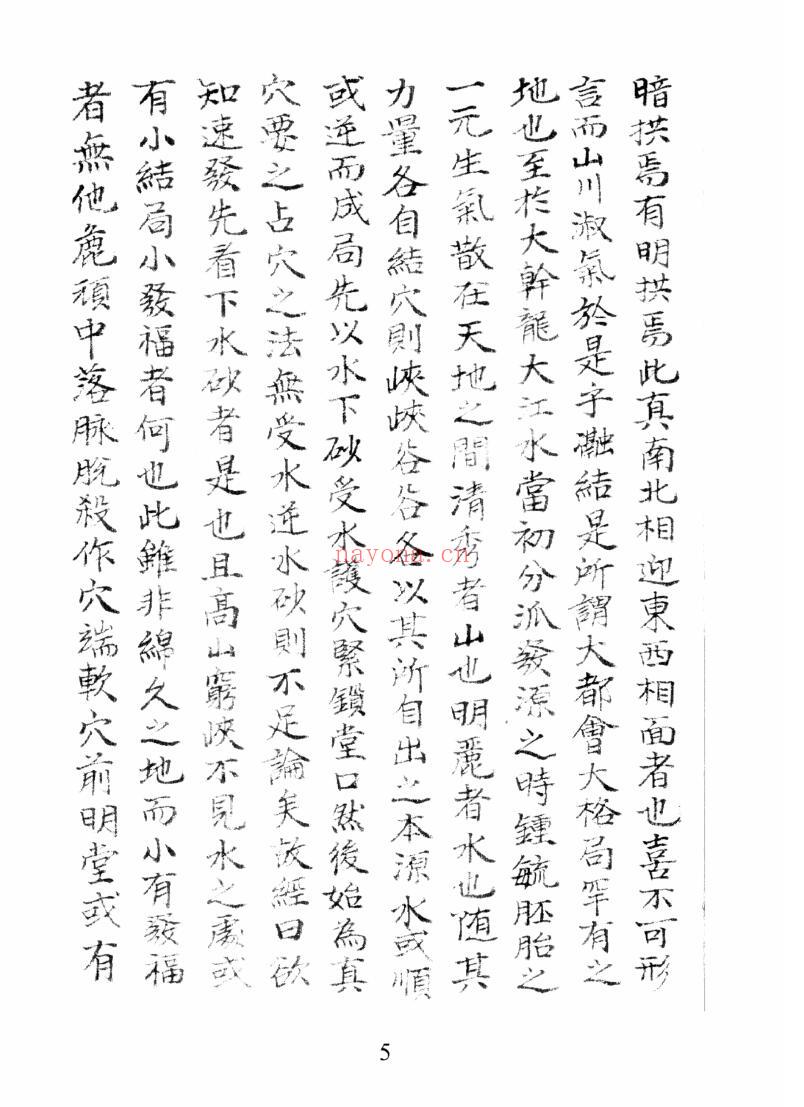 暗拱焉有明拱焉此真南北相迎東西相面者也喜不可形
言而山川淑氣於是乎瀜結是所謂大都會大格局罕有之
地也至於大幹龍大江水當初分派發源之時鍾毓胚胎之
一元生氣散在天地之間清秀者山也明麗者水也随其
力量各自結穴則峽峽谷谷各以其所自出之本源水或順
或逆而成局先以水下砂受水護穴緊鎖堂口然後始為真
穴要之占穴之法無受水逆水砂則不足論矣故經曰欲
知速發先看下水砂者是也且高山窮峽不見水之處或
有小結局小發福者何也此雖非綿久之地而小有發福
者無他麁頑中落脉脱殺作穴端軟穴前明堂或有
nayona.cn
5